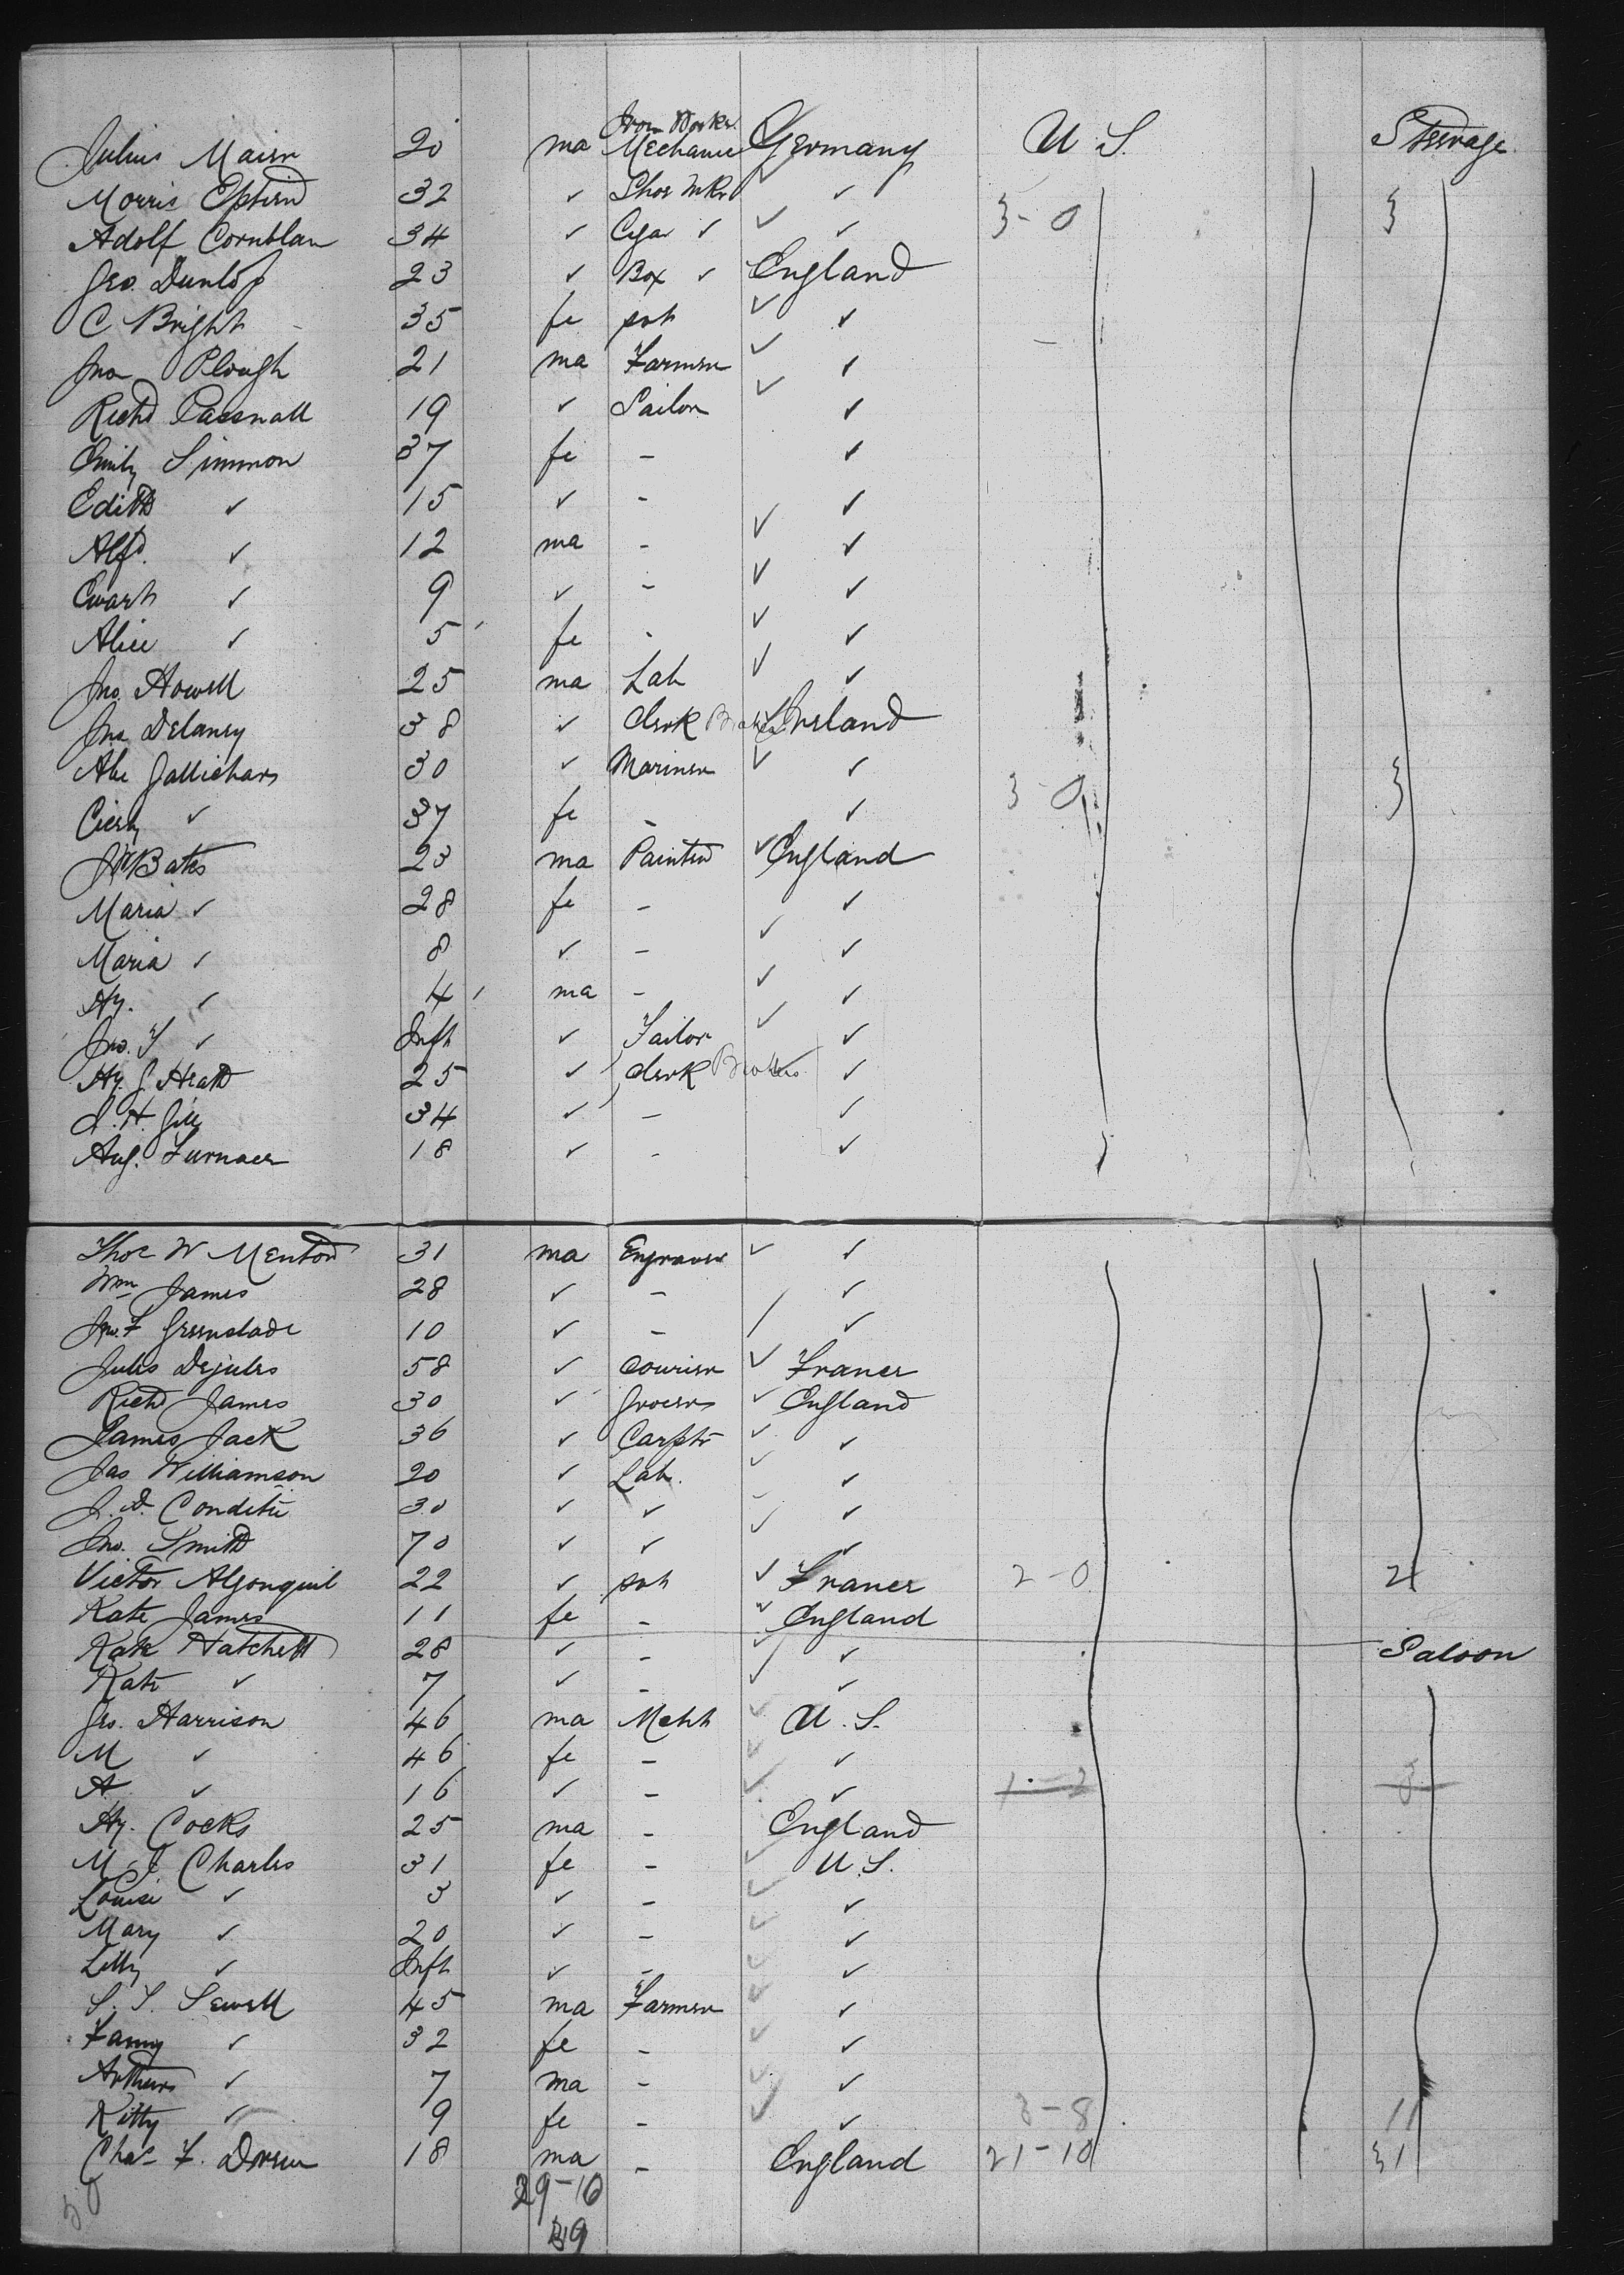 Iron Worker
Julius Maier 20 ma Mechanic Germany U S. Steerage
Morris 32 ✓ Shoe mkr ✓ ✓
Adolf Cornblau 34 ✓ Cigar ✓ ✓ ✓ 3-0 3
Geo. Dunlop 23 ✓ Box ✓ England
C Bright 35 fe ✓ ✓
Jno Plough 21 ma Farmer ✓ ✓
Richd 19 ✓ Sailor ✓ ✓
Emily Simmon 37 fe - ✓
Edith ✓ 15 ✓ - ✓
Alfd. ✓ 12 ma - ✓ ✓
Ewart ✓ 9 ✓ - ✓ ✓
Alice ✓ 5 fe - ✓ ✓
Jno. Howell 25 ma Lab ✓ ✓
Jno Delaney 38 ✓ Clerk Ireland
Abe Gallichars 30 ✓ Mariner ✓ ✓ 3-0 3
✓ 37 fe - ✓
JW Bates 23 ma Painter ✓ England
Maria ✓ 28 fe - ✓
Maria ✓ 8 ✓ - ✓ ✓
Hy. ✓ 4 ma - ✓ ✓
Jno. F ✓ Inft ✓ Tailor ✓ ✓
Hy. J Heath 25 ✓ Clerk ✓
J. H. Gill 34 ✓ - ✓
Aug. Furnace 18 ✓ - ✓
Thos W Mentor 31 ma Engraver ✓ ✓
Wm James 28 ✓ - ✓
Jno. F Greenslade 10 ✓ - / ✓
Jules Dejules 58 ✓ Courier ✓ France
Richd James 30 ✓ Grocer ✓ England
James Jack 36 ✓ Carptr ✓ ✓
Jas Williamson 20 ✓ Lab. ✓ ✓
J. D. 30 ✓ ✓ ✓
Jno. Smith 70 ✓ ✓ ✓ ✓
Victor Algonquil 22 ✓ ✓ France 2-0 2
Kate James 11 fe - ✓ England
Kate Hatchett 28 ✓ - ✓ ✓ Saloon
Kate ✓ 7 ✓ - ✓ ✓
Geo. Harrison 46 ma Mcht ✓ U. S.
M ✓ 46 fe - ✓ ✓
A. ✓ 16 ✓ - ✓ ✓ 1-2 3
Hy. Cocks 25 ma - England
M J Charles 31 fe - ✓ U. S.
Louise ✓ 3 ✓ - ✓ ✓
Mary ✓ 20 ✓ - ✓ ✓
Lilly ✓ Inft ✓ - ✓ ✓
S. S. Sewell 45 ma Farmer ✓ ✓
Fanny ✓ 32 fe - ✓ ✓
Arthur ✓ 7 ma - ✓ ✓
Kitty ✓ 9 fe - ✓ ✓ 3-8 11
Chas F. 18 ma - England 21-10 31
29-10
39
50